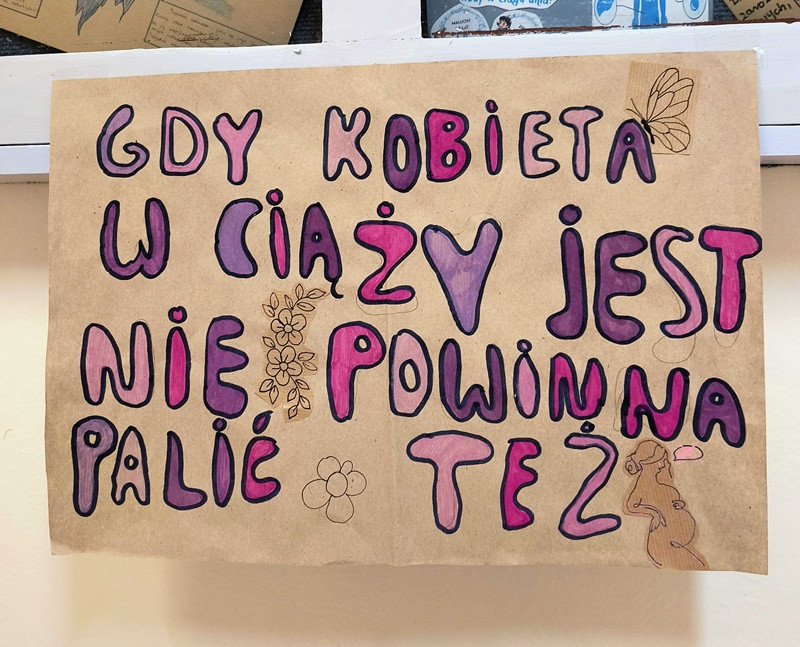 MALUCHY
GDY KOBIETA
W CIĄŻY JEST
NIE POWINNA
PALIĆ TEŻ